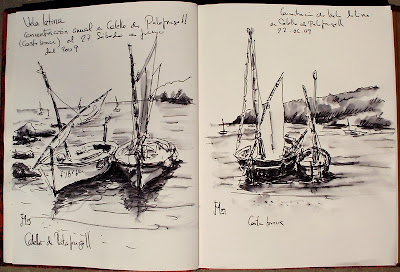 Vela latina
concentración anual a Calella de Palafrugell
(Costa brava) el 27 Sabado de junio
del 2009
Calella de Palafrugell
de vela latina
a Calella de Palafrugell
27-06-09
Costa brava